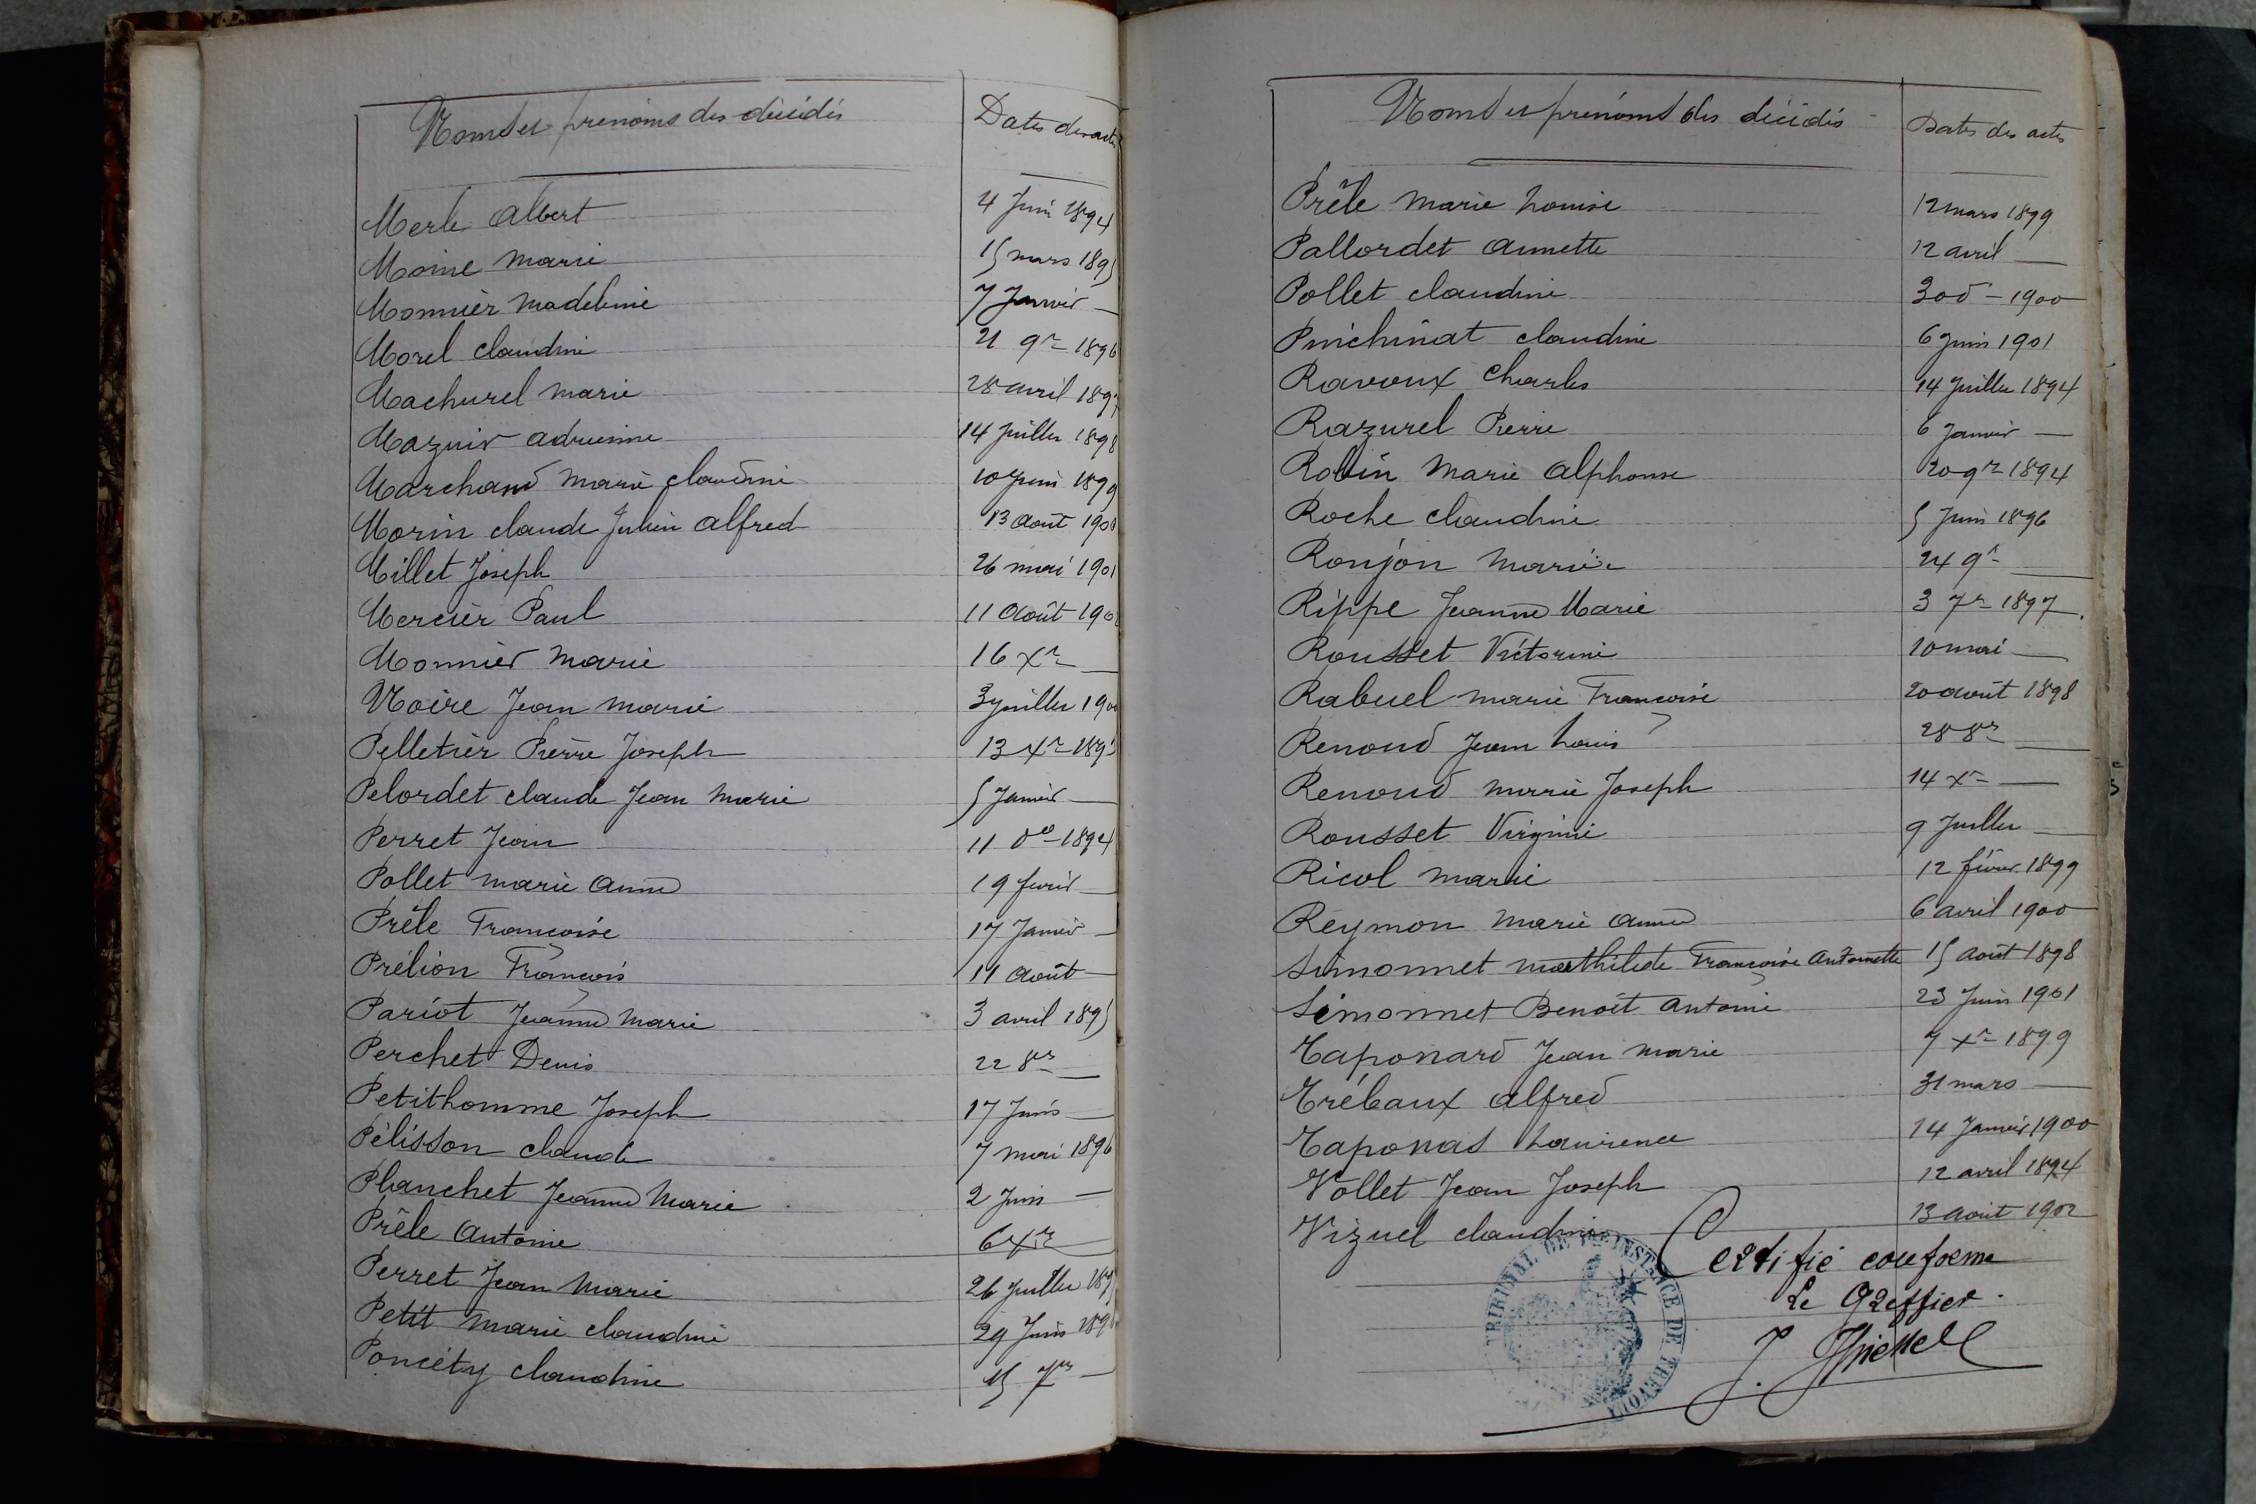 Noms et prénoms des décédés Dates des actes
Merle Albert 4 Juin 1894
Moine Marie 15 mars 1895
Monnier Madeleine 7 Janvier —
Morel Claudine 21 9re 1896
Machurel Marie 28 avril 1897
Mazuir Adrienne 14 Juillet 1898
Marchand Marie Claudine 10 Juin 1899
Morin Claude Julien Alfred 13 Août 1900
Millet Joseph 26 mai 1901
Mercier Paul 11 Août
Monnier Marie 16 Xre —
Noire Jean Marie 3 Juillet
Pelletier Pierre Joseph 13 Xre
Pelordet Claude Jean Marie 5 Janvier —
Perret Jean 11 1894
Pollet Marie Anne 19 février —
Prêle Françoise 17 Janvier —
Prélion François 11 Août —
Pariot Jeanne Marie 3 avril 1895
Perchet Denis 22 8re —
Petithomme Joseph 17 Juin —
Pélisson Claude 7 mai 1896
Planchet Jeanne Marie 2 Juin —
Prêle Antoine 6 Xre
Perret Jean Marie 26 Juillet
Petit Marie Claudine 29 Juin
Poncéty Claudine 15 7re —
Noms et prénoms des décédés Dates des actes
Prêle Marie Louise 12 mars 1899
Pallordet Annette 12 avril —
Pollet Claudine 1900
Pinichinat Claudine 6 Juin 1901
Ravoux Charles 14 Juillet 1894
Razurel Pierre 6 Janvier —
Robin Marie Alphonse 20 9re 1894
Roche Claudine 5 Juin 1896
Ronjon Marie 24 9re —
Rippe Jeanne Marie 3 7re 1897
Rousset Victorine 10 mai —
Rabuel Marie Françoise 20 Août 1898
Renoud Jean Louis 28 8re —
Renoud Marie Joseph 14 Xre —
Rousset Virginie 9 Juillet —
Ricol Marie 12 févrer 1899
Reymon Marie Anne 6 avril 1900
Simonnet Mathilde Françoise Antoinette 15 Août 1898
Simonnet Benoît Antoine 23 Juin 1901
Taponard Jean Marie 7 Xre 1899
Trébaux Alfred 31 mars —
Taponas Laurence 14 Janvier 1900
Vollet Jean Joseph 12 avril 1894
Vizuel Claudine 13 Août 1902
Certifié conforme
Le Greffier
TRIBUNAL DE 1RE INSTANCE DE TREVOUX